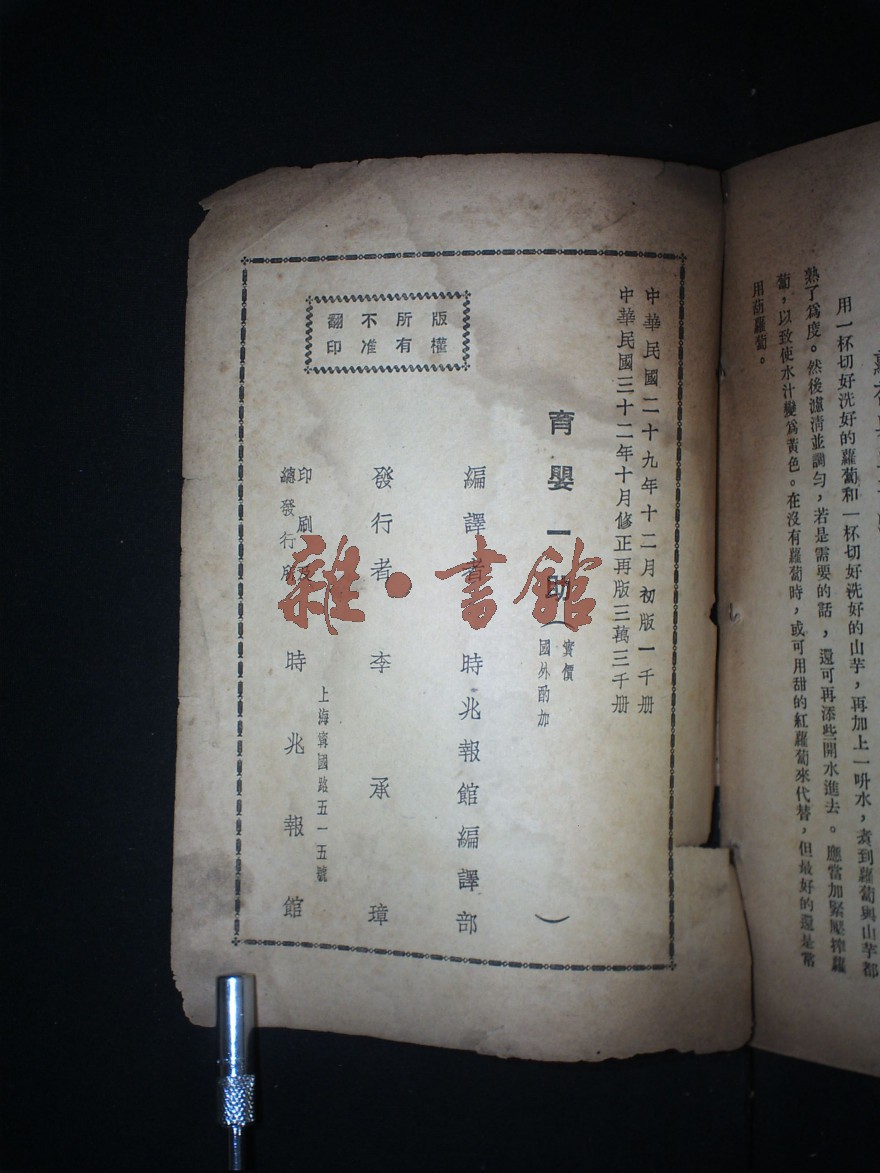 用一杯切好洗好的蘿蔔和一杯切好洗好的山芋，再加上一呏水，煮到蘿蔔與山芋都
熟了爲度。然後濾淸並調勻，若是需要的話，還可再添些開水進去。應當加緊壓搾蘿
蔔，以致使水汁變爲黃色。在沒有蘿蔔時，或可用甜的紅蘿蔔來代替，但最好的還是常
用葫蘿蔔。
中華民國二十九年十二月初版一千册
中華民國三十二年十月修正再版三萬三千册
育嬰一助（實價
國外酌加）
編譯者 時兆報館編譯部
發行者 李承璋
上海寗國路五一五號
印刷及
總發行所 時兆報館
版權
所有
不准
翻印
雜·書館